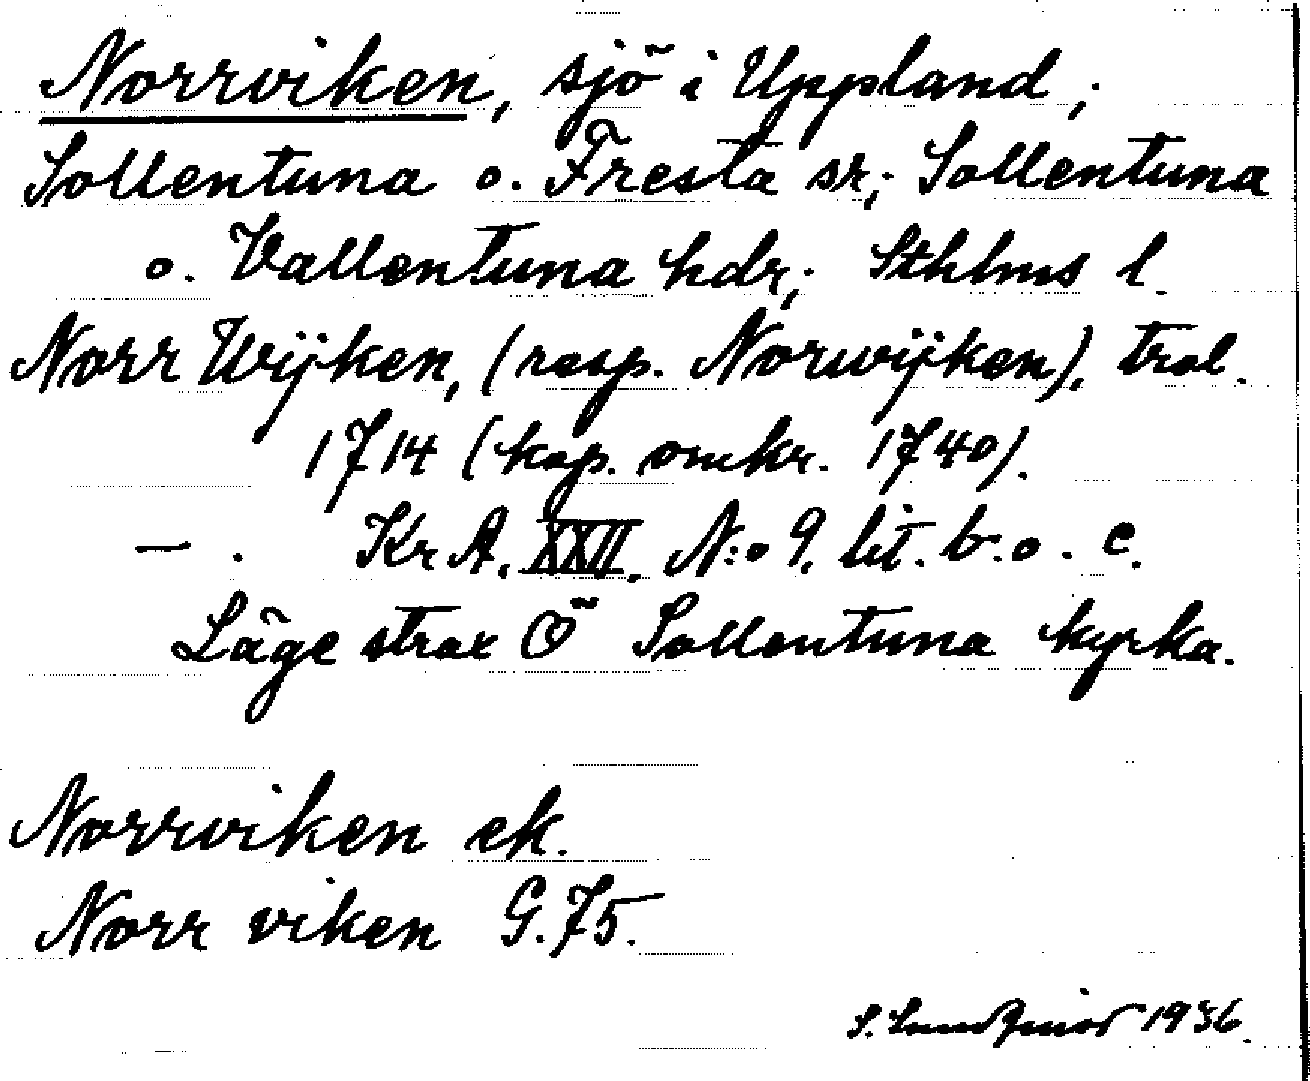 Norrviken, sjö i Uppland,;
Sollentuna o. Fresta sr,; Sollentuna
o. Vallentuna hdr,; Sthlms l.
Norr Wijken, (resp. Norwijken), trol.
1714 (kop. omkr. 1740).
— . Kr A. XXII. N:o 9. lit. b. o. c.
Läge strax Ö Sollentuna kyrka.
Norrviken ek.
Norr viken G. 75.
S. Lundqvist 1936.